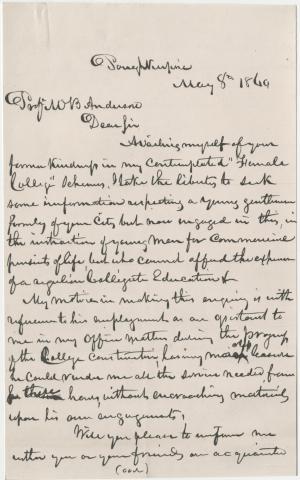 Poughkeepsie
May 8th 1860
Prof. M B Anderson
Dear Sir
Availing myself of your
former kindness in my contemplated "Female
College" Schemes, I take the liberty to seek
some information respecting a young gentleman
formerly of your City, but now engaged in this, in
the instruction of young men for Commercial
pursuits of life but who cannot afford the expense
of a regular Collegiate Education
My motive in making this enquiry is with
reference to his employment as an assistant to
me in my Office Matters during the progress
of the College construction, having
he could render me all the service needed, from
hours, without encroaching materially
upon his own engagements,
Will you please to inform me
wither you or your friends are acquainted
(over)